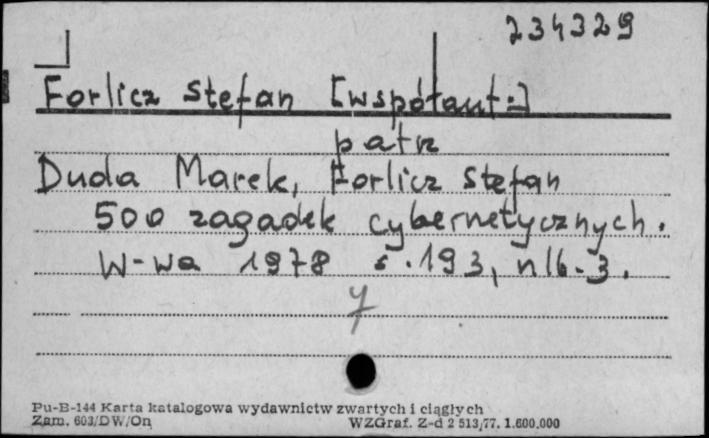 234329
Forlicz Stefan [współaut.]
patrz
Duda Marek, Forlicz Stefan
500 zagadek cybernetycznych.
W-wa 1978 s. 193, nlb. 3.
y
Pu-B-144 Karta katalogowa wydawnictw zwartych i ciągłych
Zam. 603/DW/On WZGraf. Z-d 2 513/77. 1.600.000